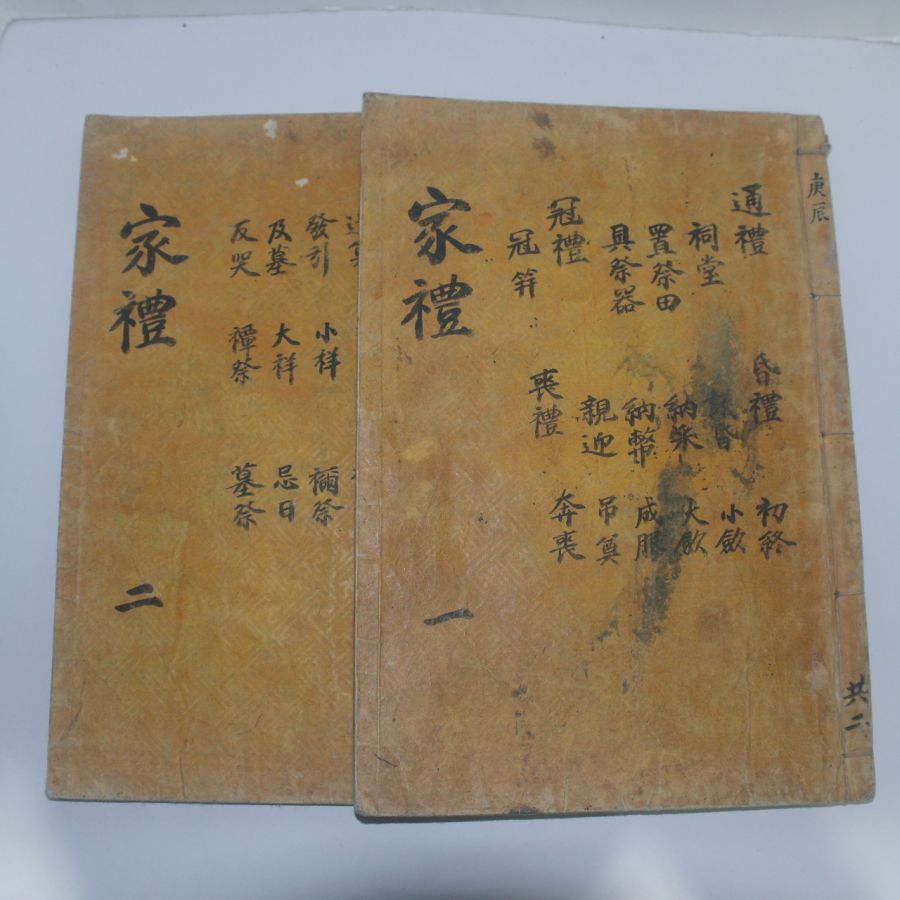 庚辰
通禮
祠堂
置祭田
具祭器
冠禮
冠筓
昏禮
昏
納采
納幣
親迎
喪禮
初終
小斂
大斂
成服
吊奠
奔喪
家禮
一
共二
發引
及墓
反哭
小祥
大祥
禫祭
祔祭
忌日
墓祭
家禮
二